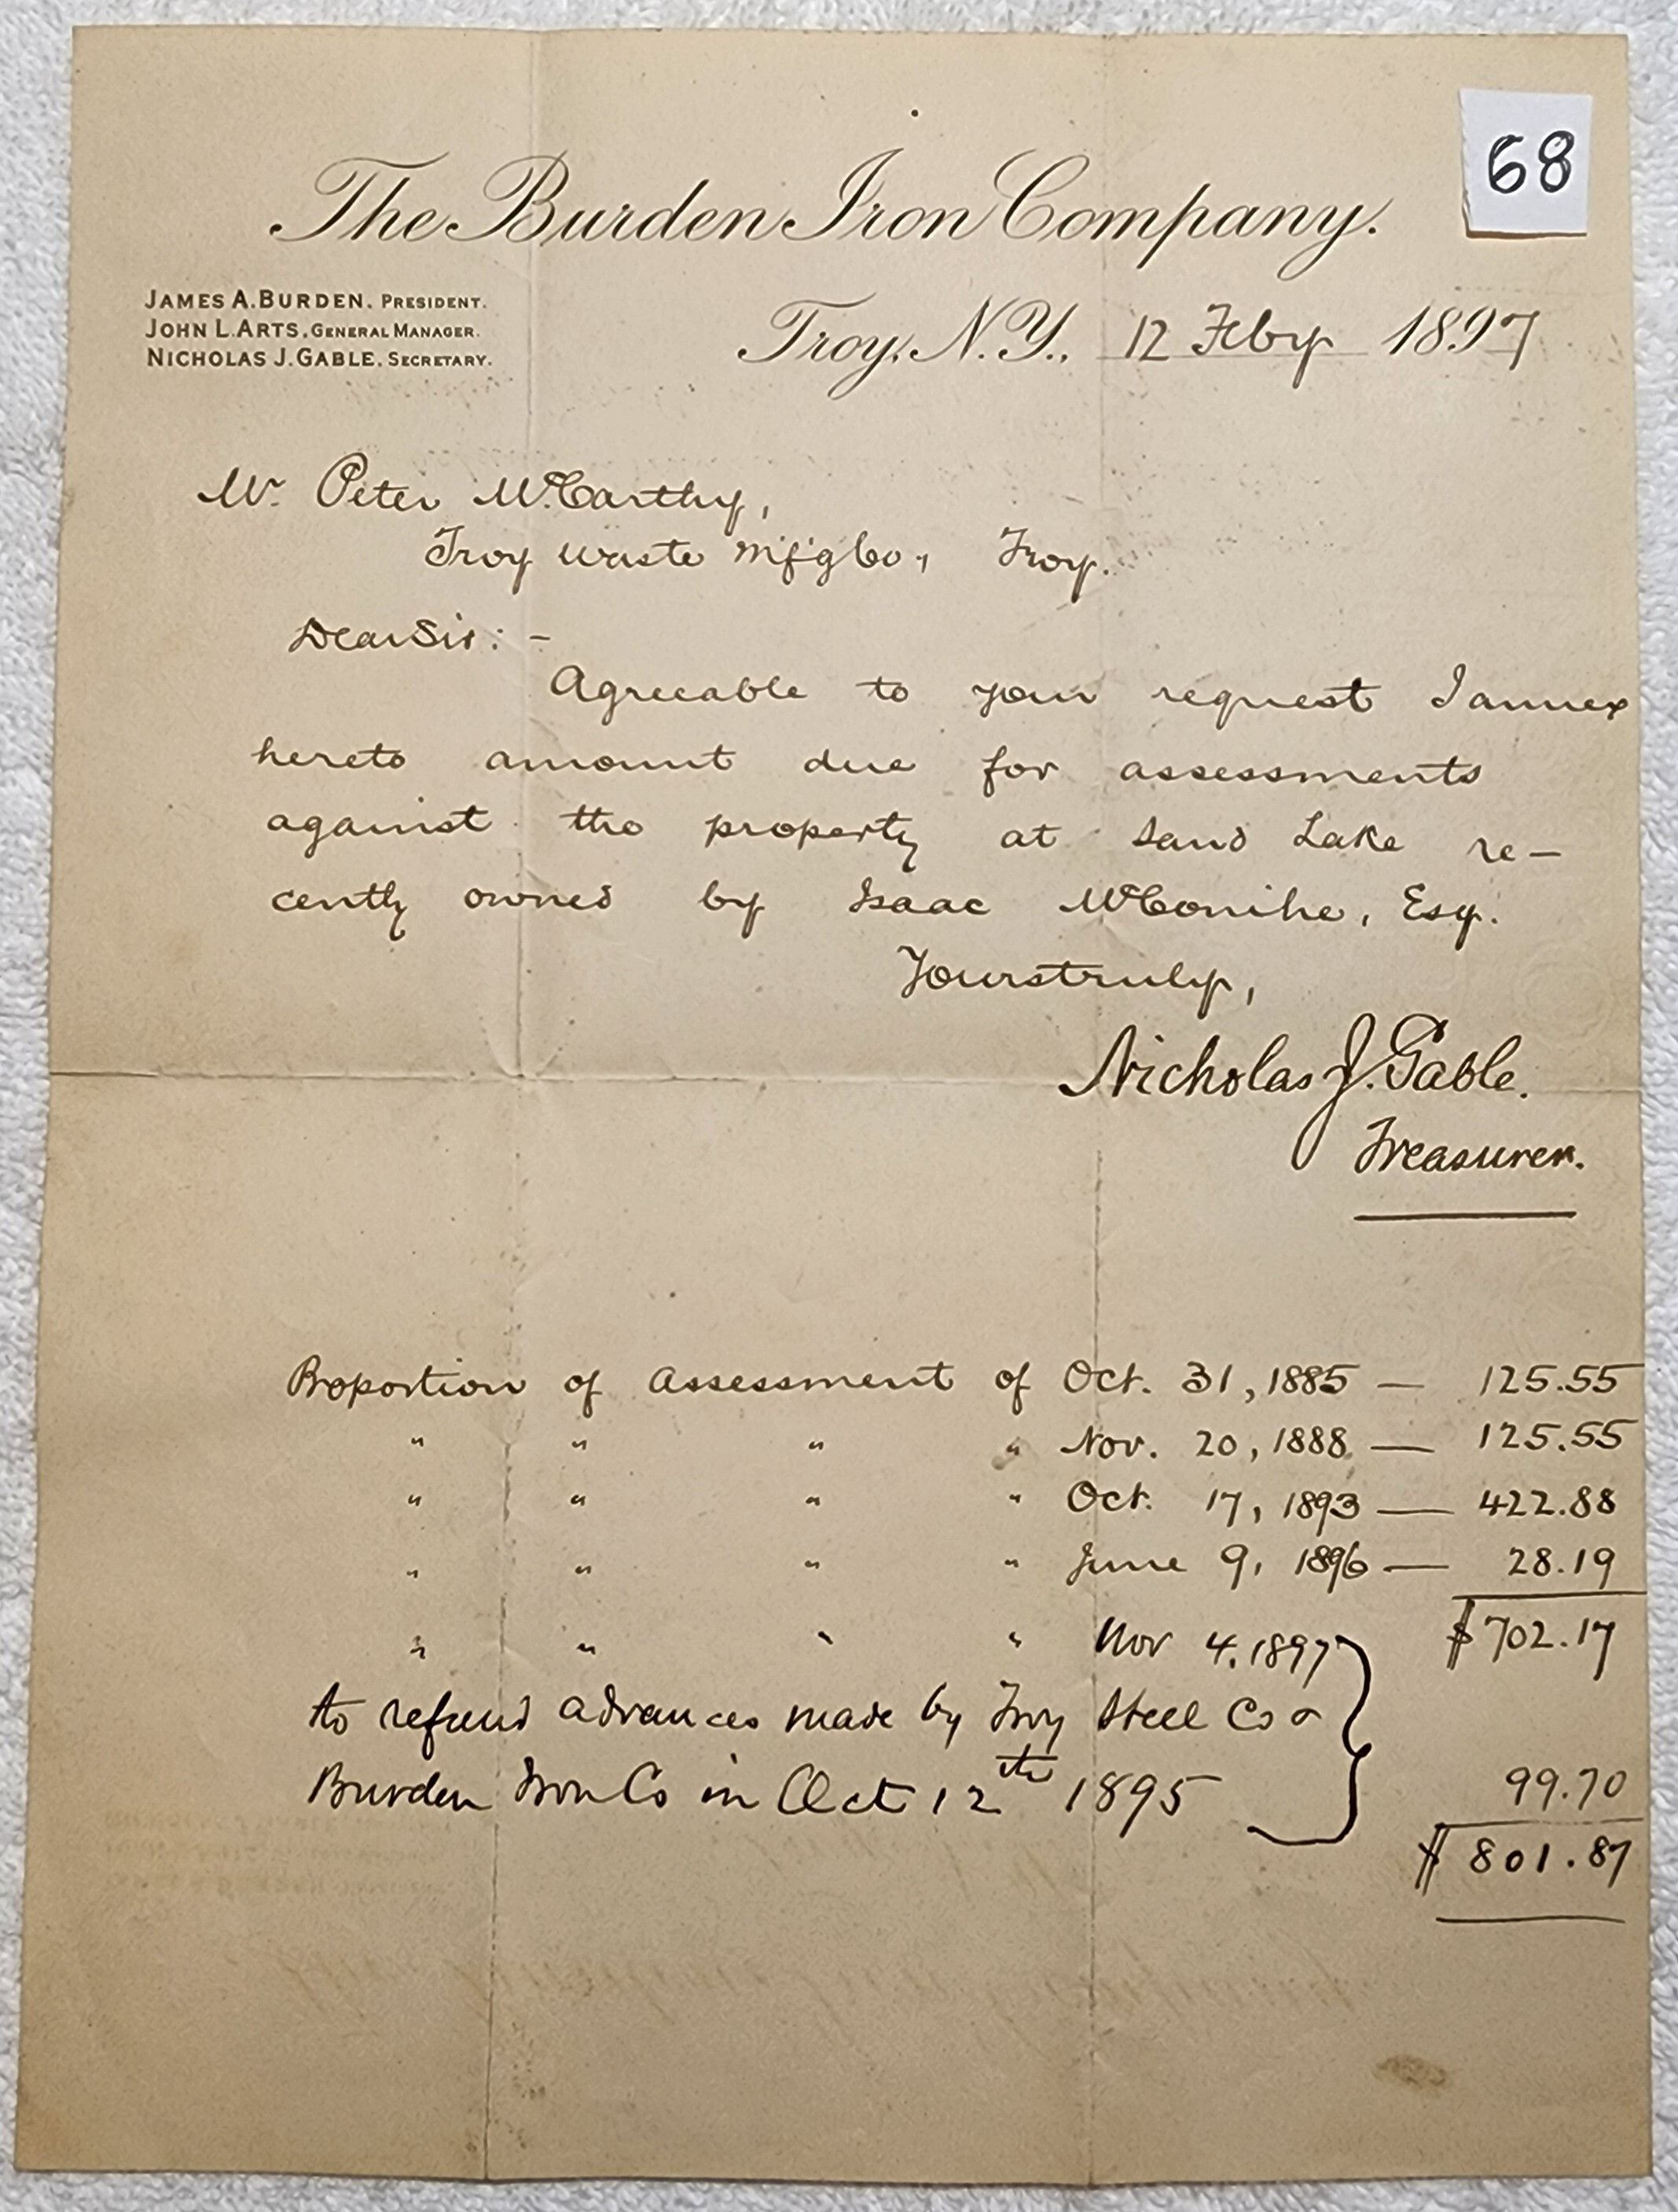 68
The Burden Iron Company.
JAMES A. BURDEN. PRESIDENT.
JOHN L. ARTS. GENERAL MANAGER.
NICHOLAS J. GABLE. SECRETARY.
Troy, N.Y., 12 Feby 1897
Mr. Peter McCarthy,
Troy Waste M'f'g Co., Troy.
Dear Sir: -
Agreeable to your request I annex
hereto amount due for assessments
against the property at Sand Lake re-
cently owned by Isaac McConihe, Esq.
Yours truly,
Nicholas J. Gable.
Treasurer.
Proportion of Assessment of Oct. 31, 1885 — 125.55
" " " " Nov. 20, 1888 — 125.55
" " " " Oct. 17, 1893 — 422.88
" " " " June 9, 1896 — 28.19
$702.17
" " " " Nov 4. 1897
to refund advances made by Troy Steel Co &
Burden Iron Co in Oct 12th 1895 99.70
$801.87